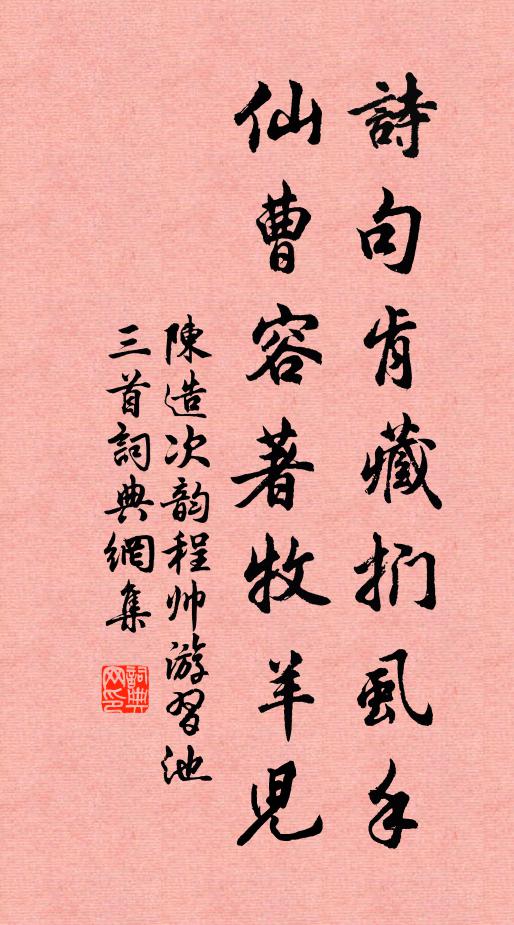 詩句肯藏捫虱手
仙曹容著牧羊兒
陳造次韵程帅游習池
三首詞典網集
詞典网印